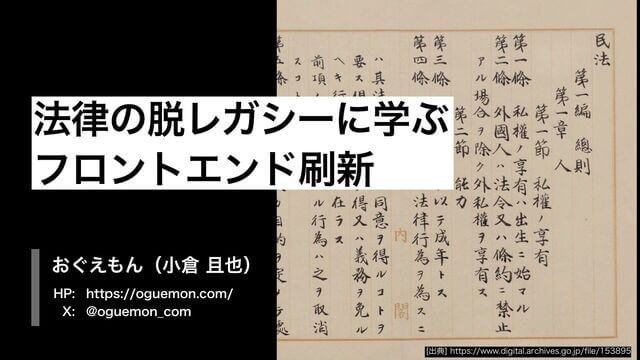 法律の脱レガシーに学ぶ
フロントエンド刷新
おぐえもん（小倉 且也）
HP: https://oguemon.com/
X: @oguemon_com
民法
第一編 總則
第一章 人
第一節 私權ノ享有
第一條 私權ノ享有ハ出生ニ始マル
第二條 外國人ハ法令又ハ條約ニ禁止
アル場合ヲ除ク外私權ヲ享有ス
第二節 能力
第三條
以テ成年トス
第四條
法律行爲ヲ爲スニ
ハ其法
同意ヲ得ルコトヲ
要ス
得又ハ義務ヲ免ル
ヘキ行
在ラス
前項ノ
ル行爲ハ之ヲ取消
スコト
第五條
內閣
[出典] https://www.digital.archives.go.jp/file/153895